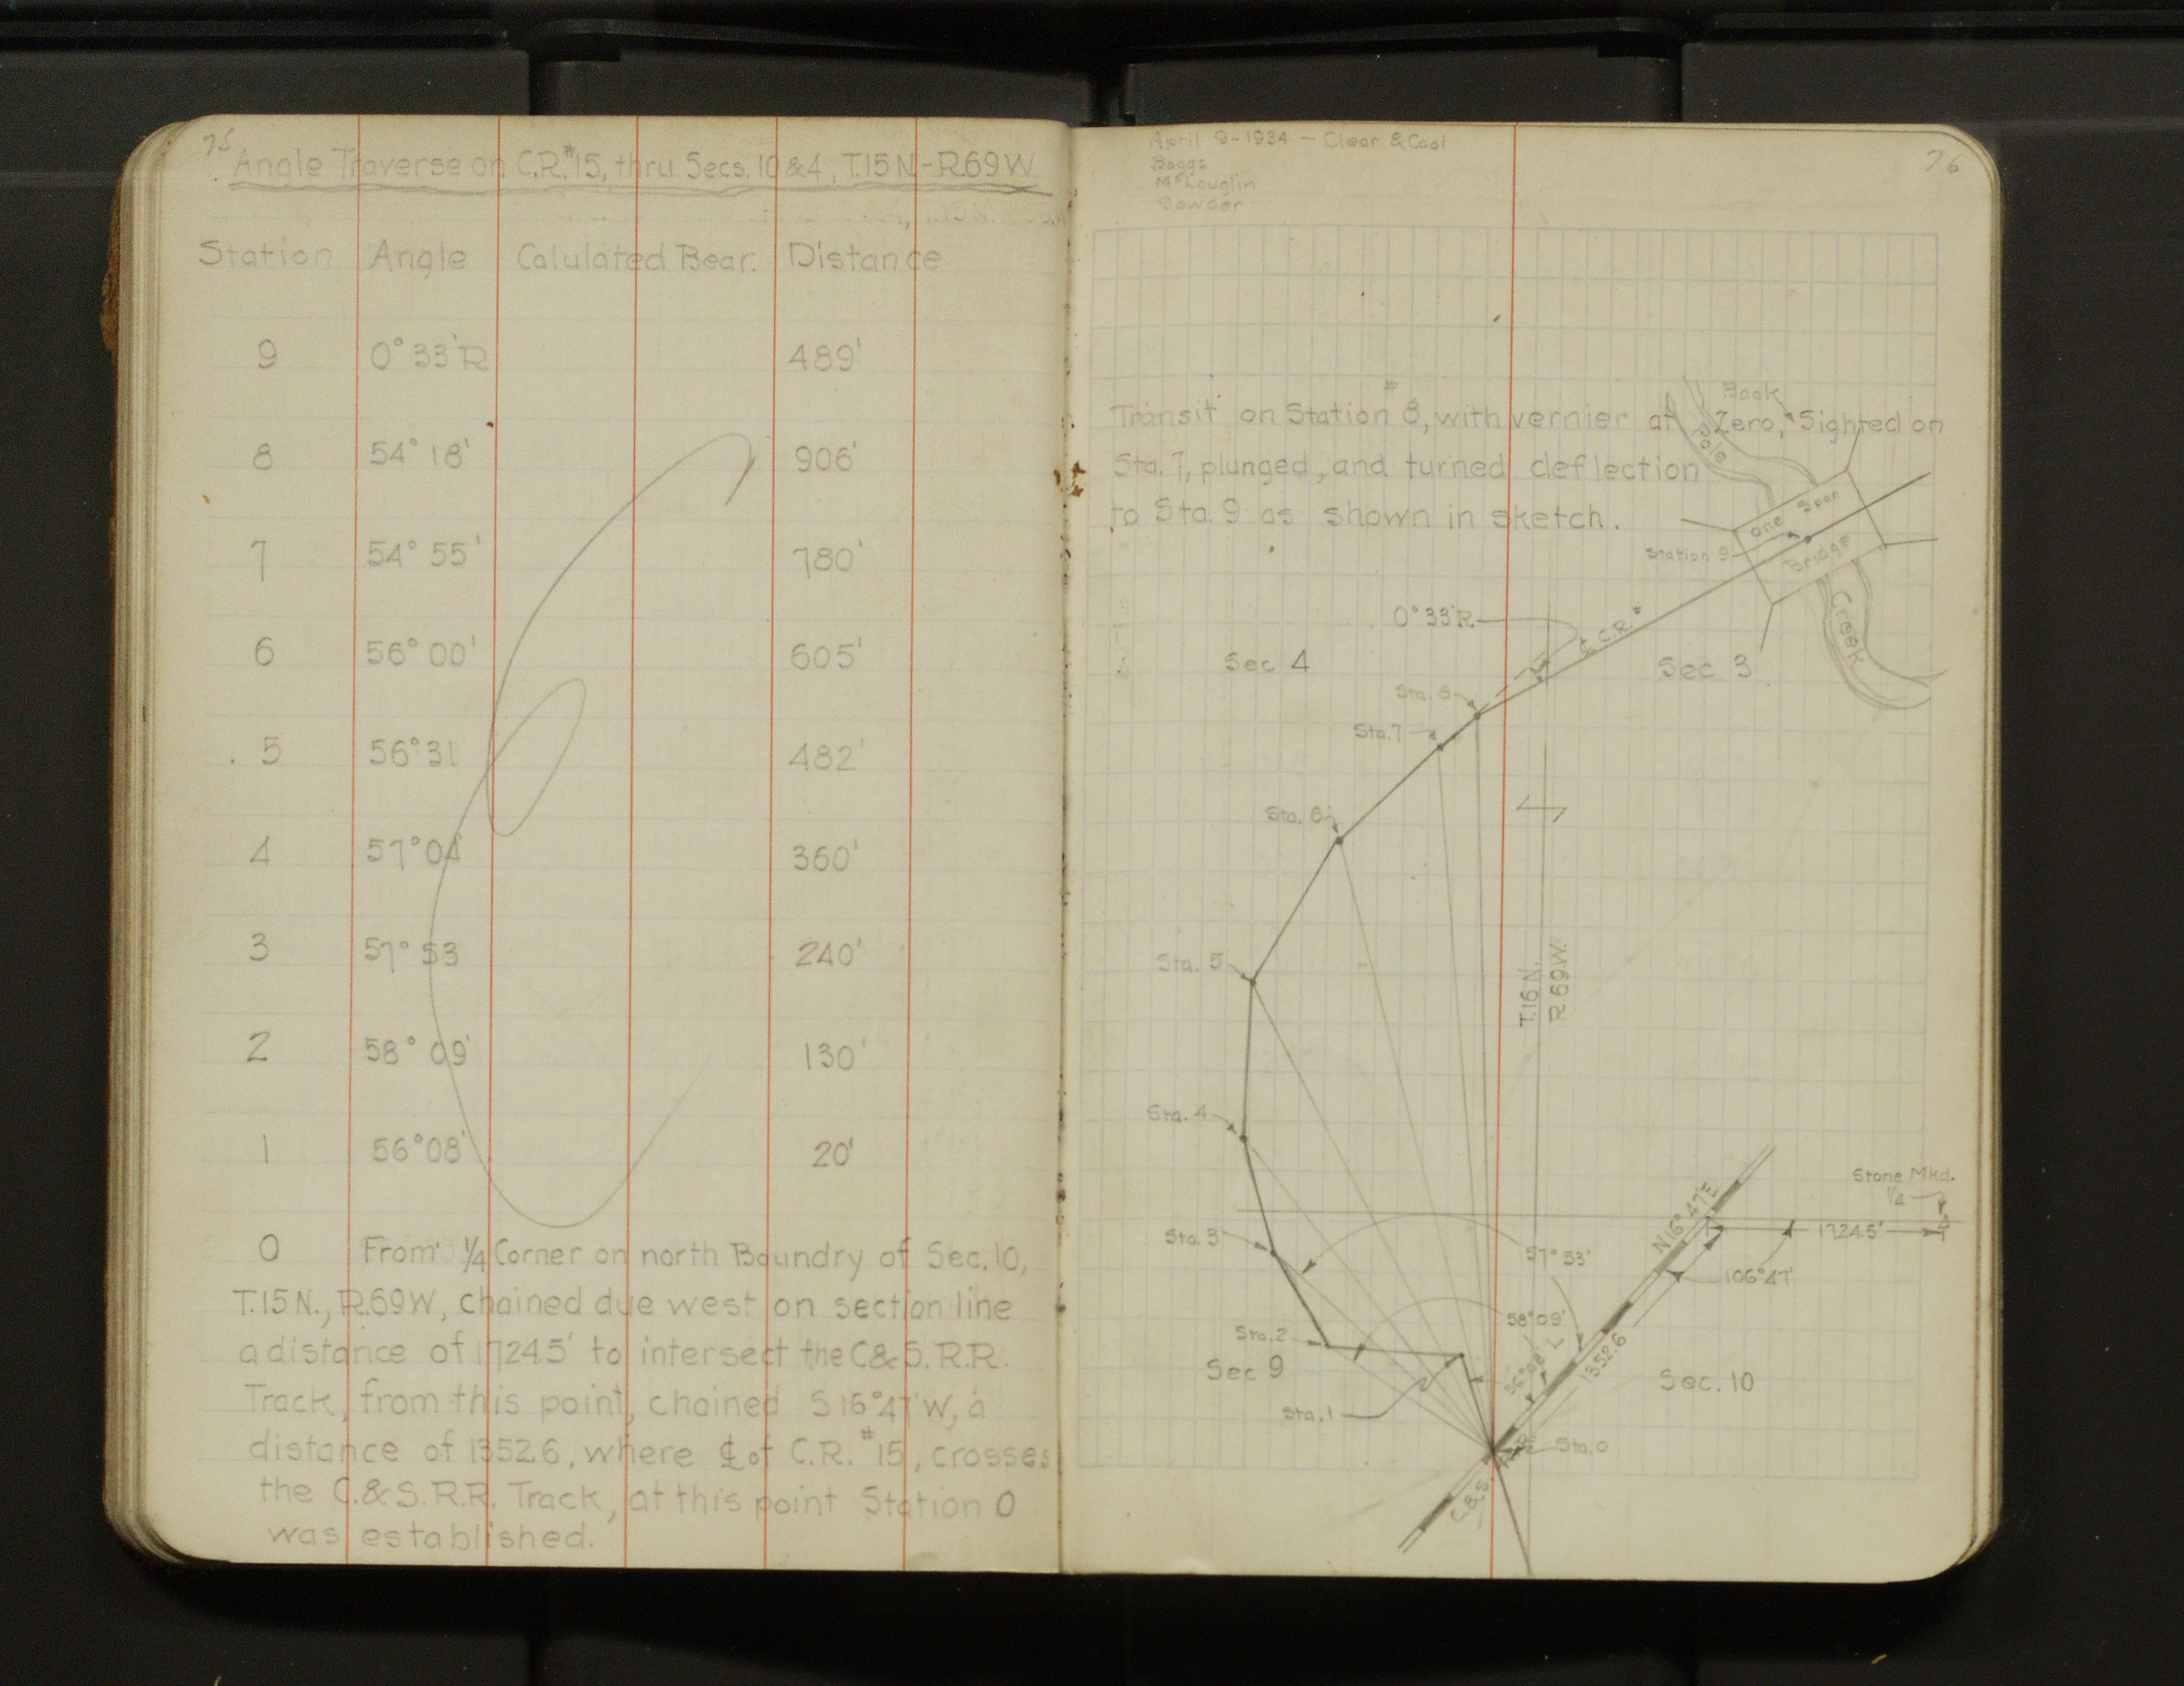 75
Angle Traverse on C.R.#15, thru Secs. 10 & 4, T.15N-R.69W
Station Angle Calulated Bear. Distance
9 0°33'R 489'
8 54°18' 906'
7 54°55' 780'
6 56°00' 605'
5 56°31 482'
4 57°04' 360'
3 57°53 240'
2 58°09' 130'
1 56°08' 20'
0 From 1/4 Corner on north Boundry of Sec. 10,
T.15N., R.69W, chained due west on section line
a distance of 1724.5' to intersect the C&S. R.R.
Track, from this point, chained S16°47'W, a
distance of 1352.6, where ℄ of C.R. #15, crosses
the C.&S.R.R. Track, at this point Station 0
was established.
April 9-1934 - Clear & Cool
Baggs
McLauglin
Sowder
76
Transit on Station #8, with vernier at Zero, Back Sighted on
Sta. 7, plunged, and turned deflection
to Sta. 9 as shown in sketch.
Lodgepole
One Span
Bridge
Station 9
Creek
0°33'R
℄ C.R.#
Sec 4
Sec 3
Sta. 8
Sta. 7
Sta. 6
Sta. 5
T.16N.
R.69W.
Sta. 4
Stone Mkd.
1/4
N16°47'E
1724.5'
Sta. 3
57°53'
106°47'
58°09'
Sta. 2
56°08' L
1352.6
Sec 9
Sec. 10
Sta. 1
Sta. 0
C.&S.
R.R.